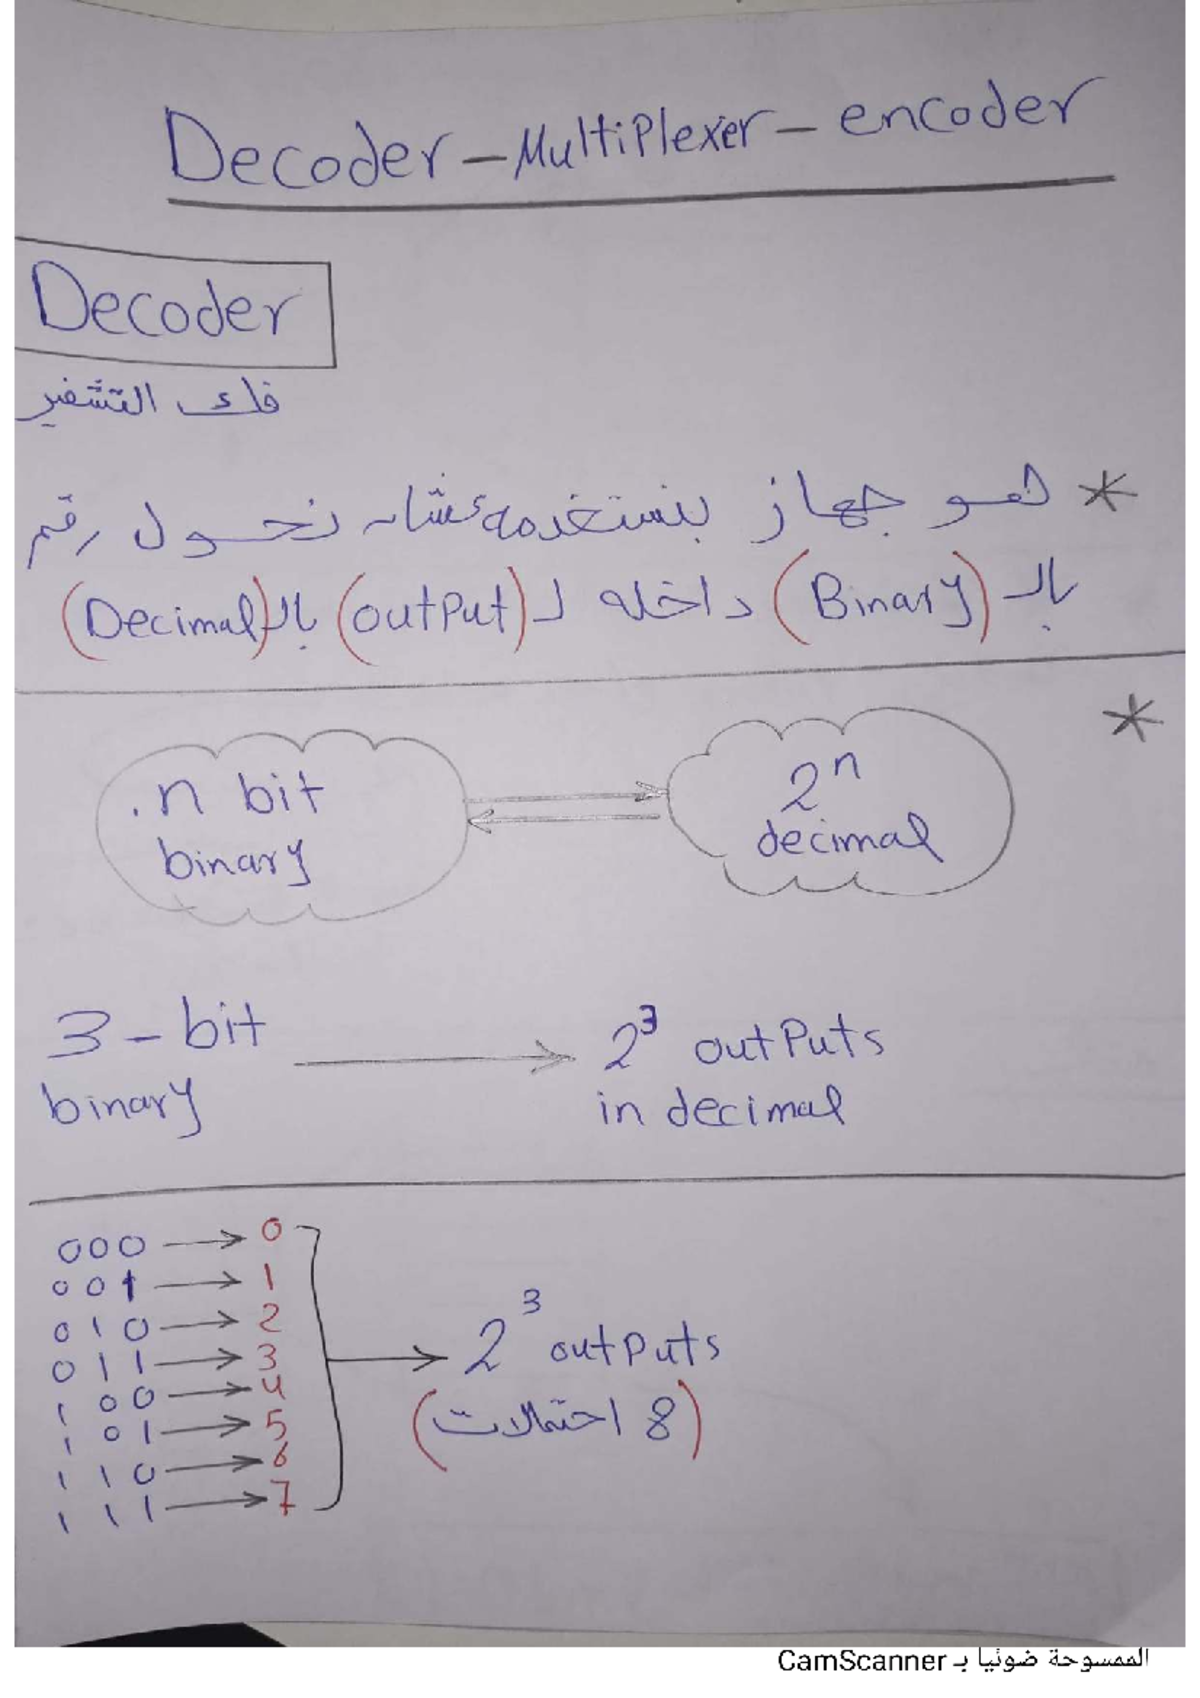 Decoder - Multiplexer - encoder
Decoder
فك التشفير
* هو جهاز بنستخدمه عشان نحول رقم
بالـ (Binary) داخله لـ (output) بالـ (Decimal)
*
n bit
binary
2ⁿ
decimal
3-bit
binary
2³ outputs
in decimal
000 → 0
001 → 1
010 → 2
011 → 3
100 → 4
101 → 5
110 → 6
111 → 7
2³ outputs
(8 احتمالات)
الممسوحة ضوئيا بـ CamScanner